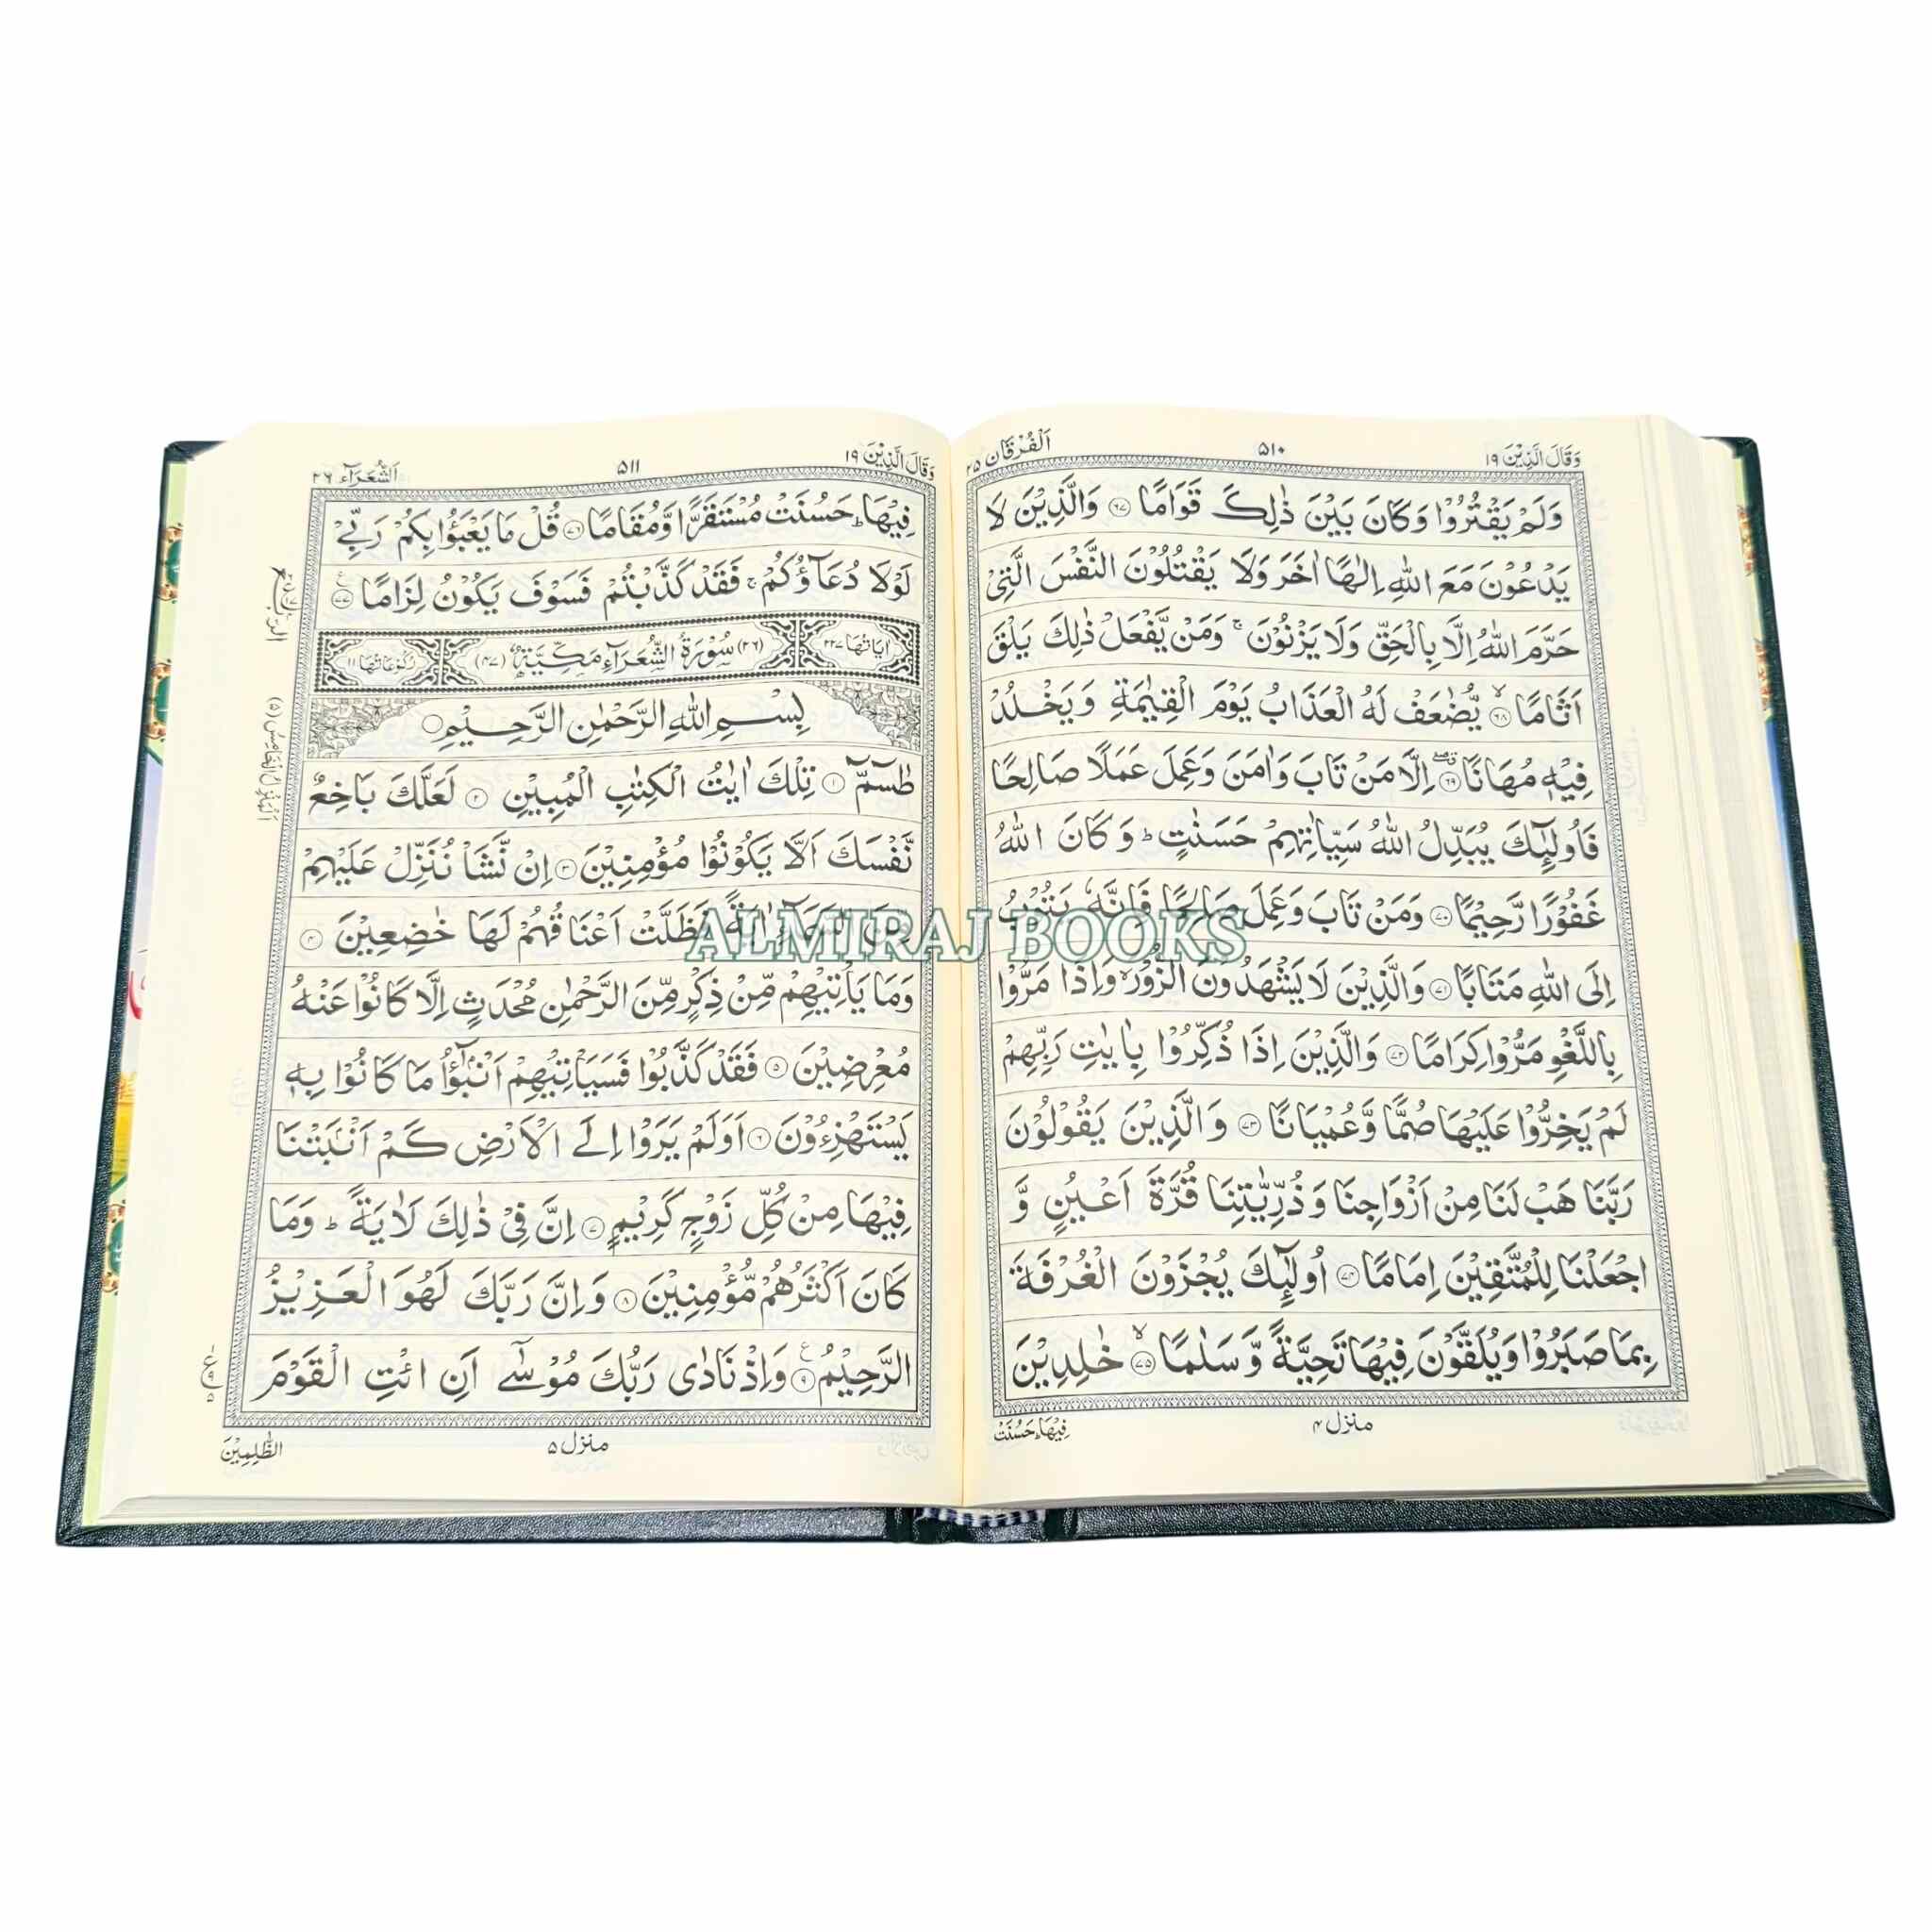 وَقَالَ الَّذِيْنَ ١٩
٥١٠
اَلْفُرْقَان ٢٥
وَلَمْ يَقْتُرُوْا وَكَانَ بَيْنَ ذٰلِكَ قَوَامًا ۝٦٧ وَالَّذِيْنَ لَا
يَدْعُوْنَ مَعَ اللّٰهِ اِلٰهًا اٰخَرَ وَلَا يَقْتُلُوْنَ النَّفْسَ الَّتِيْ
حَرَّمَ اللّٰهُ اِلَّا بِالْحَقِّ وَلَا يَزْنُوْنَ ۚ وَمَنْ يَّفْعَلْ ذٰلِكَ يَلْقَ
اَثَامًا ۝٦٨ۙ يُّضٰعَفْ لَهُ الْعَذَابُ يَوْمَ الْقِيٰمَةِ وَيَخْلُدْ
فِيْهٖ مُهَانًا ۝٦٩ اِلَّا مَنْ تَابَ وَاٰمَنَ وَعَمِلَ عَمَلًا صَالِحًا
فَاُولٰٓئِكَ يُبَدِّلُ اللّٰهُ سَيِّاٰتِهِمْ حَسَنٰتٍ ؕ وَكَانَ اللّٰهُ
غَفُوْرًا رَّحِيْمًا ۝٧٠ وَمَنْ تَابَ وَعَمِلَ صَالِحًا فَاِنَّهٗ يَتُوْبُ
اِلَى اللّٰهِ مَتَابًا ۝٧١ وَالَّذِيْنَ لَا يَشْهَدُوْنَ الزُّوْرَ ۙ وَاِذَا مَرُّوْا
بِاللَّغْوِ مَرُّوْا كِرَامًا ۝٧٢ وَالَّذِيْنَ اِذَا ذُكِّرُوْا بِاٰيٰتِ رَبِّهِمْ
لَمْ يَخِرُّوْا عَلَيْهَا صُمًّا وَّعُمْيَانًا ۝٧٣ وَالَّذِيْنَ يَقُوْلُوْنَ
رَبَّنَا هَبْ لَنَا مِنْ اَزْوَاجِنَا وَذُرِّيّٰتِنَا قُرَّةَ اَعْيُنٍ وَّ
اجْعَلْنَا لِلْمُتَّقِيْنَ اِمَامًا ۝٧٤ اُولٰٓئِكَ يُجْزَوْنَ الْغُرْفَةَ
بِمَا صَبَرُوْا وَيُلَقَّوْنَ فِيْهَا تَحِيَّةً وَّسَلٰمًا ۝٧٥ۙ خٰلِدِيْنَ
منزل ٤
فِيْهَا ؕ حَسُنَتْ
وَقَالَ الَّذِيْنَ ١٩
٥١١
اَلشُّعَرَآء ٢٦
فِيْهَا ؕ حَسُنَتْ مُسْتَقَرًّا وَّمُقَامًا ۝٧٦ قُلْ مَا يَعْبَؤُا بِكُمْ رَبِّيْ
لَوْلَا دُعَآؤُكُمْ ۚ فَقَدْ كَذَّبْتُمْ فَسَوْفَ يَكُوْنُ لِزَامًا ۝٧٧ۧ
اٰيَاتُهَا ٢٢٧
(٢٦) سُوْرَةُ الشُّعَرَآءِ مَكِّيَّةٌ (٤٧)
رُكُوْعَاتُهَا ١١
بِسْمِ اللّٰهِ الرَّحْمٰنِ الرَّحِيْمِ
طٰسٓمّٓ ۝١ تِلْكَ اٰيٰتُ الْكِتٰبِ الْمُبِيْنِ ۝٢ لَعَلَّكَ بَاخِعٌ
نَّفْسَكَ اَلَّا يَكُوْنُوْا مُؤْمِنِيْنَ ۝٣ اِنْ نَّشَاْ نُنَزِّلْ عَلَيْهِمْ
مِّنَ السَّمَآءِ اٰيَةً فَظَلَّتْ اَعْنَاقُهُمْ لَهَا خٰضِعِيْنَ ۝٤
وَمَا يَاْتِيْهِمْ مِّنْ ذِكْرٍ مِّنَ الرَّحْمٰنِ مُحْدَثٍ اِلَّا كَانُوْا عَنْهُ
مُعْرِضِيْنَ ۝٥ فَقَدْ كَذَّبُوْا فَسَيَاْتِيْهِمْ اَنْۢبٰٓؤُا مَا كَانُوْا بِهٖ
يَسْتَهْزِءُوْنَ ۝٦ اَوَلَمْ يَرَوْا اِلَى الْاَرْضِ كَمْ اَنْۢبَتْنَا
فِيْهَا مِنْ كُلِّ زَوْجٍ كَرِيْمٍ ۝٧ اِنَّ فِيْ ذٰلِكَ لَاٰيَةً ؕ وَمَا
كَانَ اَكْثَرُهُمْ مُّؤْمِنِيْنَ ۝٨ وَاِنَّ رَبَّكَ لَهُوَ الْعَزِيْزُ
الرَّحِيْمُ ۝٩ۧ وَاِذْ نَادٰى رَبُّكَ مُوْسٰٓى اَنِ ائْتِ الْقَوْمَ
منزل ٥
الظّٰلِمِيْنَ
اَلْمَنْزِلُ الْخَامِسُ (٥)
ALMIRAJ BOOKS